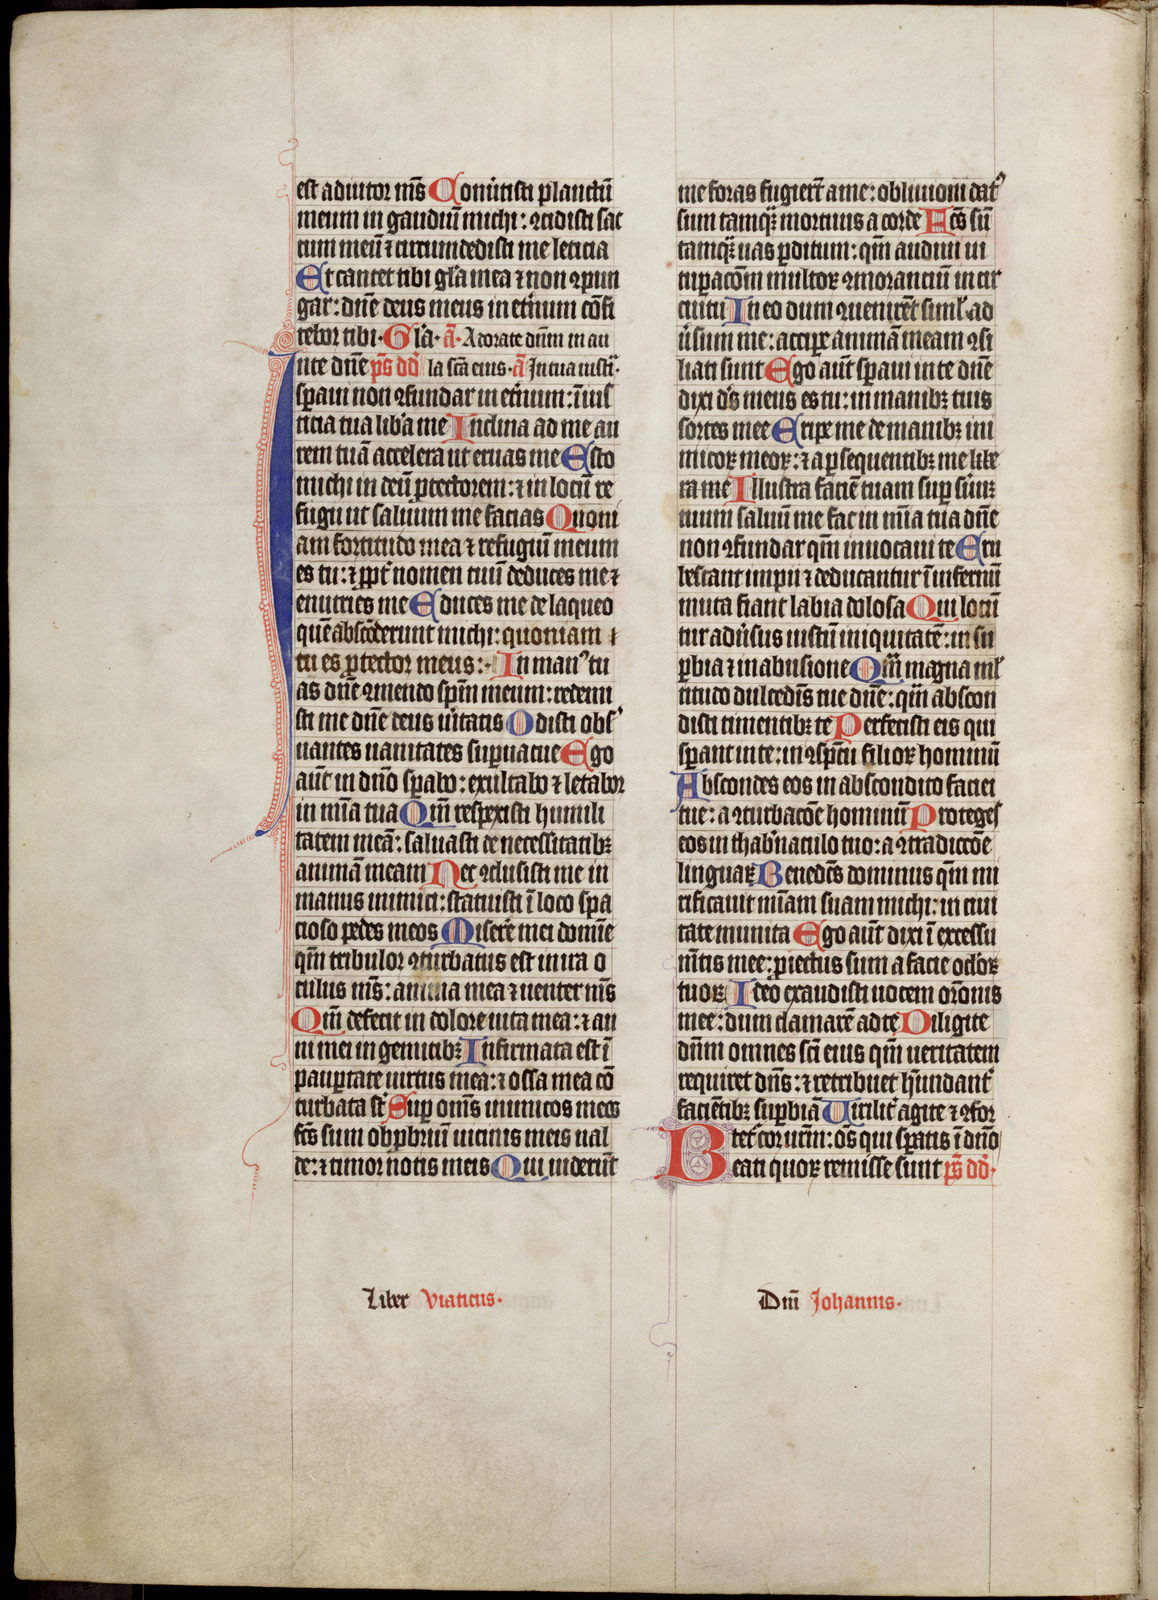 est adiutor mס̄s Conuertisti planctū
meum in gaudiū michi: ꝯcidisti sac
cum meū ⁊ circumdedisti me leticia
Et cantet tibi gl̄a mea ⁊ non ꝯpun
gar: dn̄e deus meus in et̄num cōfi
tebor tibi· Gl̄a· a̅· Adorate dn̄m in au
la sc̄a eius· a̅ In tua iusti·
In te dn̄e p̄s dd̄
sꝑaui non ꝯfundar in et̄num: ī ius
ticia tua lib̄a me Inclina ad me au
rem tuā accelera ut eruas me Esto
michi in deū ꝓtectorem: ⁊ in locū re
fugii ut saluum me facias Quoni
am fortitudo mea ⁊ refugiū meum
es tu: ⁊ ꝓpt̄ nomen tuū deduces me ⁊
enutries me Educes me de laqueo
quē absc̄oderunt michi: quoniam
tu es ꝓtector meus: In man⁹ tu
as dn̄e ꝯmendo sp̄m meum: redemi
sti me dn̄e deus uītatis Odisti obs̄
uantes uanitates suꝑuacue Ego
aūt in dn̄o sꝑabo: exultabo ⁊ letabor
in mīa tua Qm̄ respexisti humili
tatem meā: saluasti de necessitatibꝫ
animā meam Nec ꝯclusisti me in
manus inimici: statuisti ī loco spa
cioso pedes meos Miser̄e mei domine
qm̄ tribulor ꝯturbatus est in ira o
culus ms̄: anima mea ⁊ uenter ms̄
Qm̄ defecit in dolore uita mea: ⁊ an
ni mei in gemitibꝫ Infirmata est ī
pauꝑtate uirtus mea: ⁊ ossa mea cō
turbata st̄ Suꝑ om̄s inimicos meos
fc̄s sum obꝓbriū uicinis meis ual
de: ⁊ timor notis meis Qui uiderūt
me foras fugier̄t a me: obliuioni dat⁹
sum tamq̄ꝫ mortuus a corde Fc̄s sū
tamq̄ꝫ uas ꝑditum: qm̄ audiui ui
tuꝑac̄om multoꝝ ꝯmoranciū in cir
cuitu In eo dum ꝯuenirēt siml̄ ad
ūsum me: accipe animā meam ꝯsi
liati sunt Ego aūt sꝑaui in te dn̄e
dixi ds̄ meus es tu: in manibꝫ tuis
sortes mee Eripe me de manibꝫ ini
micoꝝ meoꝝ: ⁊ a ꝑsequentibꝫ me libe
ra me Illustra faciē tuam suꝑ s̄uū
tuum saluū me fac in mīa tua dn̄e
non ꝯfundar qm̄ inuocaui te Eru
bescant impii ⁊ deducantur ī infernū
muta fiant labia dolosa Qui locū
tur adūsus iustū iniquitatē: in su
ꝑbia ⁊ in abusione Qm̄ magna ml̄
titudo dulced̄is tue dn̄e: qm̄ abscon
disti timentibꝫ te Perfecisti eis qui
sꝑant in te: in ꝯsp̄cu filioꝝ hominū
Abscondes eos in abscondito faciei
tue: a ꝯturbac̄oe hominū Proteges
eos in thab̄naculo tuo: a ꝯtradicc̄oe
linguaꝝ Bened̄cs dominus qm̄ mi
rificauit mīam suam michi: in ciui
tate munita Ego aūt dixi ī excessu
m̄tis mee: ꝓiectus sum a facie oc̄loꝝ
tuoꝝ Ideo exaudisti uocem or̄onis
mee: dum clamarē ad te Diligite
dn̄m omnes sc̄i eius qm̄ ueritatem
requiret dn̄s: ⁊ retribuet h̄undant̄
faciētibꝫ suꝑbiā Uirilit̄ agite ⁊ ꝯfor
tet̄ cor ur̄m: om̄s qui sꝑatis ī dn̄o
Beati quoꝝ remisse sunt p̄s dd̄·
Liber Viaticus·
Dn̄i Johannis·